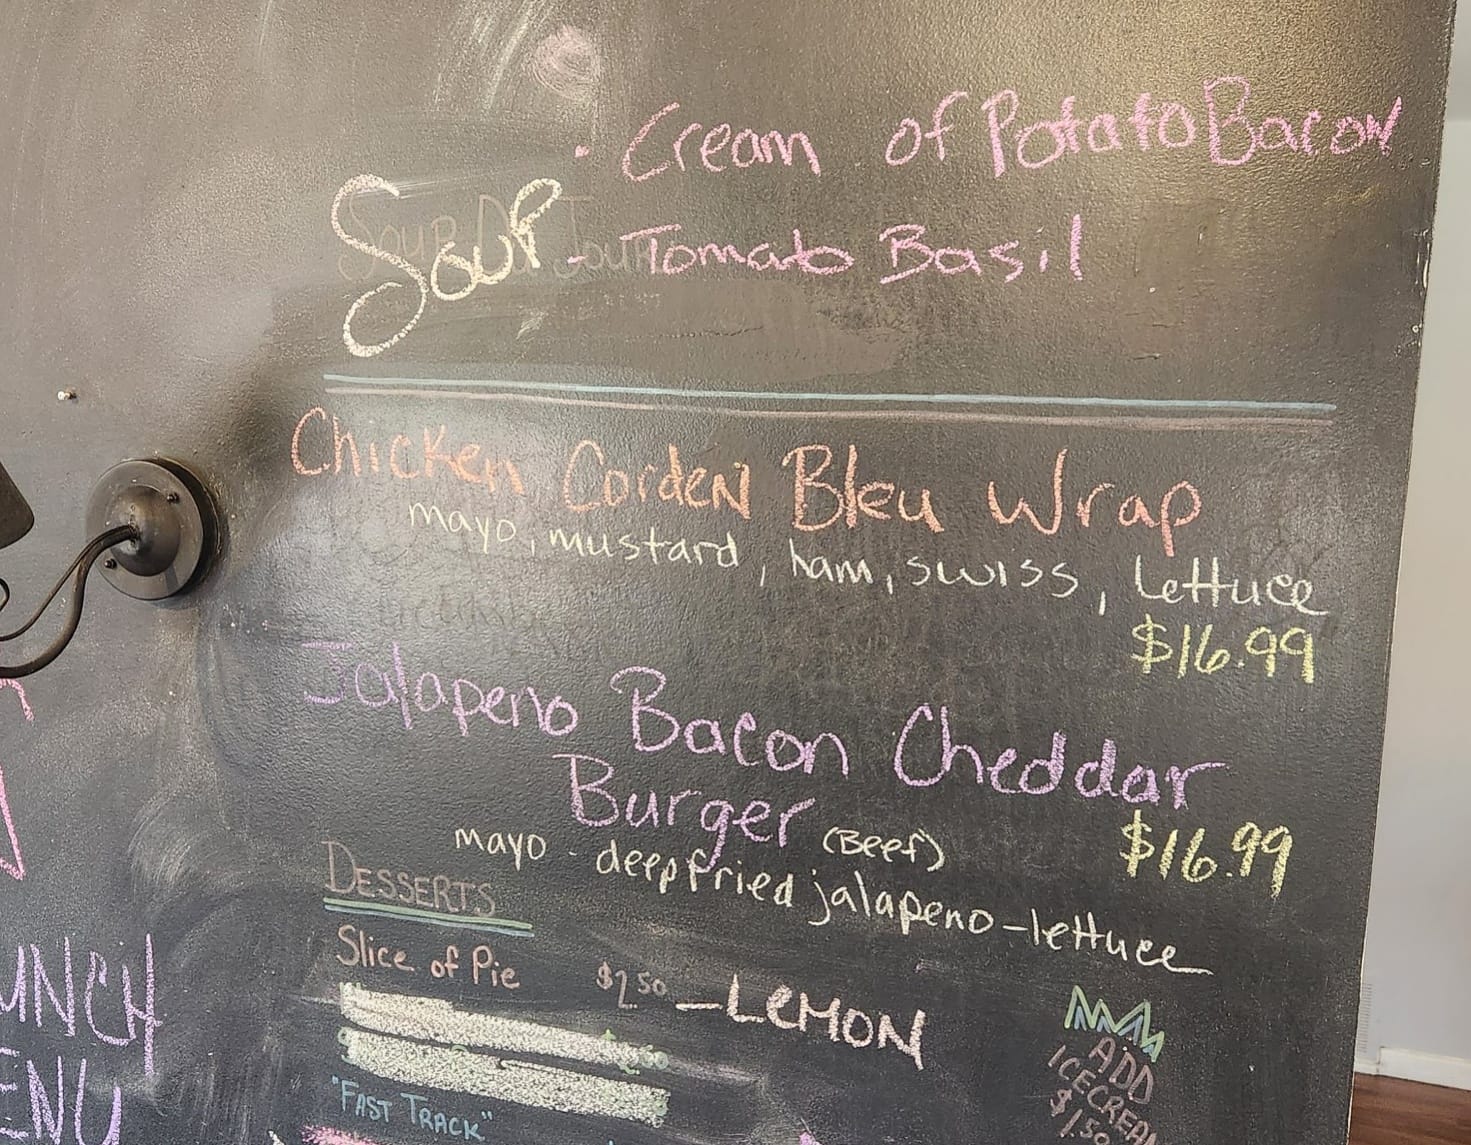 · Cream of Potato Bacon
Soup - Tomato Basil
Soup Du Jour
Chicken Corden Bleu Wrap
mayo, mustard, ham, swiss, lettuce
$16.99
Jalapeno Bacon Cheddar
Burger (Beef) $16.99
mayo - deep fried jalapeno - lettuce
DESSERTS
Slice of Pie $2.50 - LEMON
ADD
ICECREAM
$1.50
"FAST TRACK"
UNCH
ENU